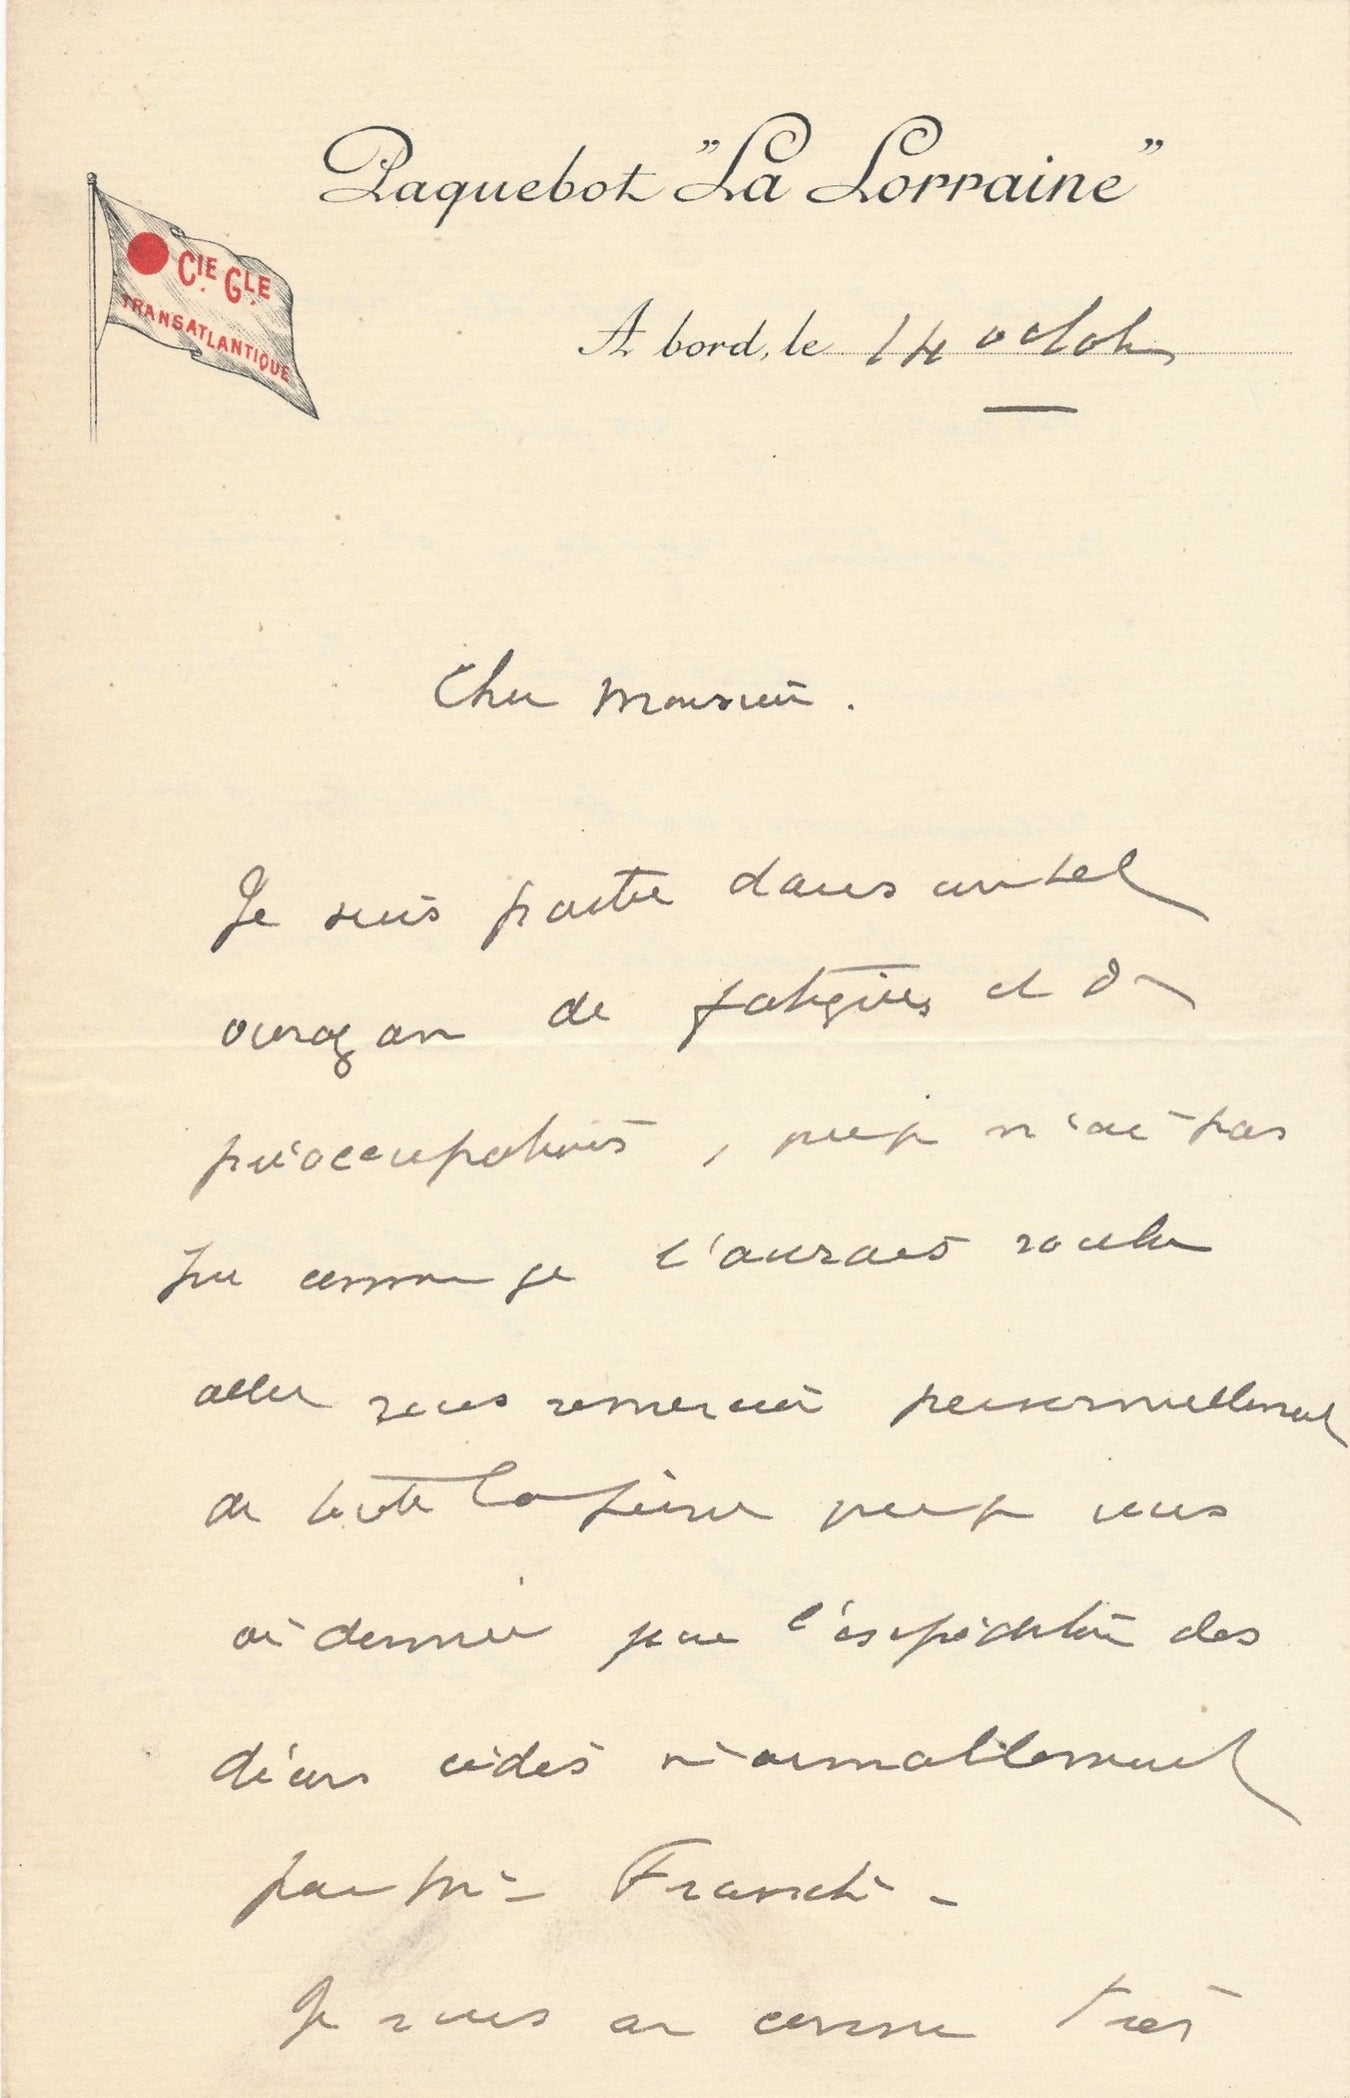 Paquebot "La Lorraine"
CIE GLE
TRANSATLANTIQUE
A bord, le 14 octobre
Cher Monsieur.
Je suis partie dans un tel
ouragan de fatigues et de
préoccupations, que je n'ai pas
pu comme je l'aurais voulu
aller vous remercier personnellement
de toute la peine que je vous
ai donnée pour l'expédition des
décors cédés
par Mr Franck -
Je vous en
très